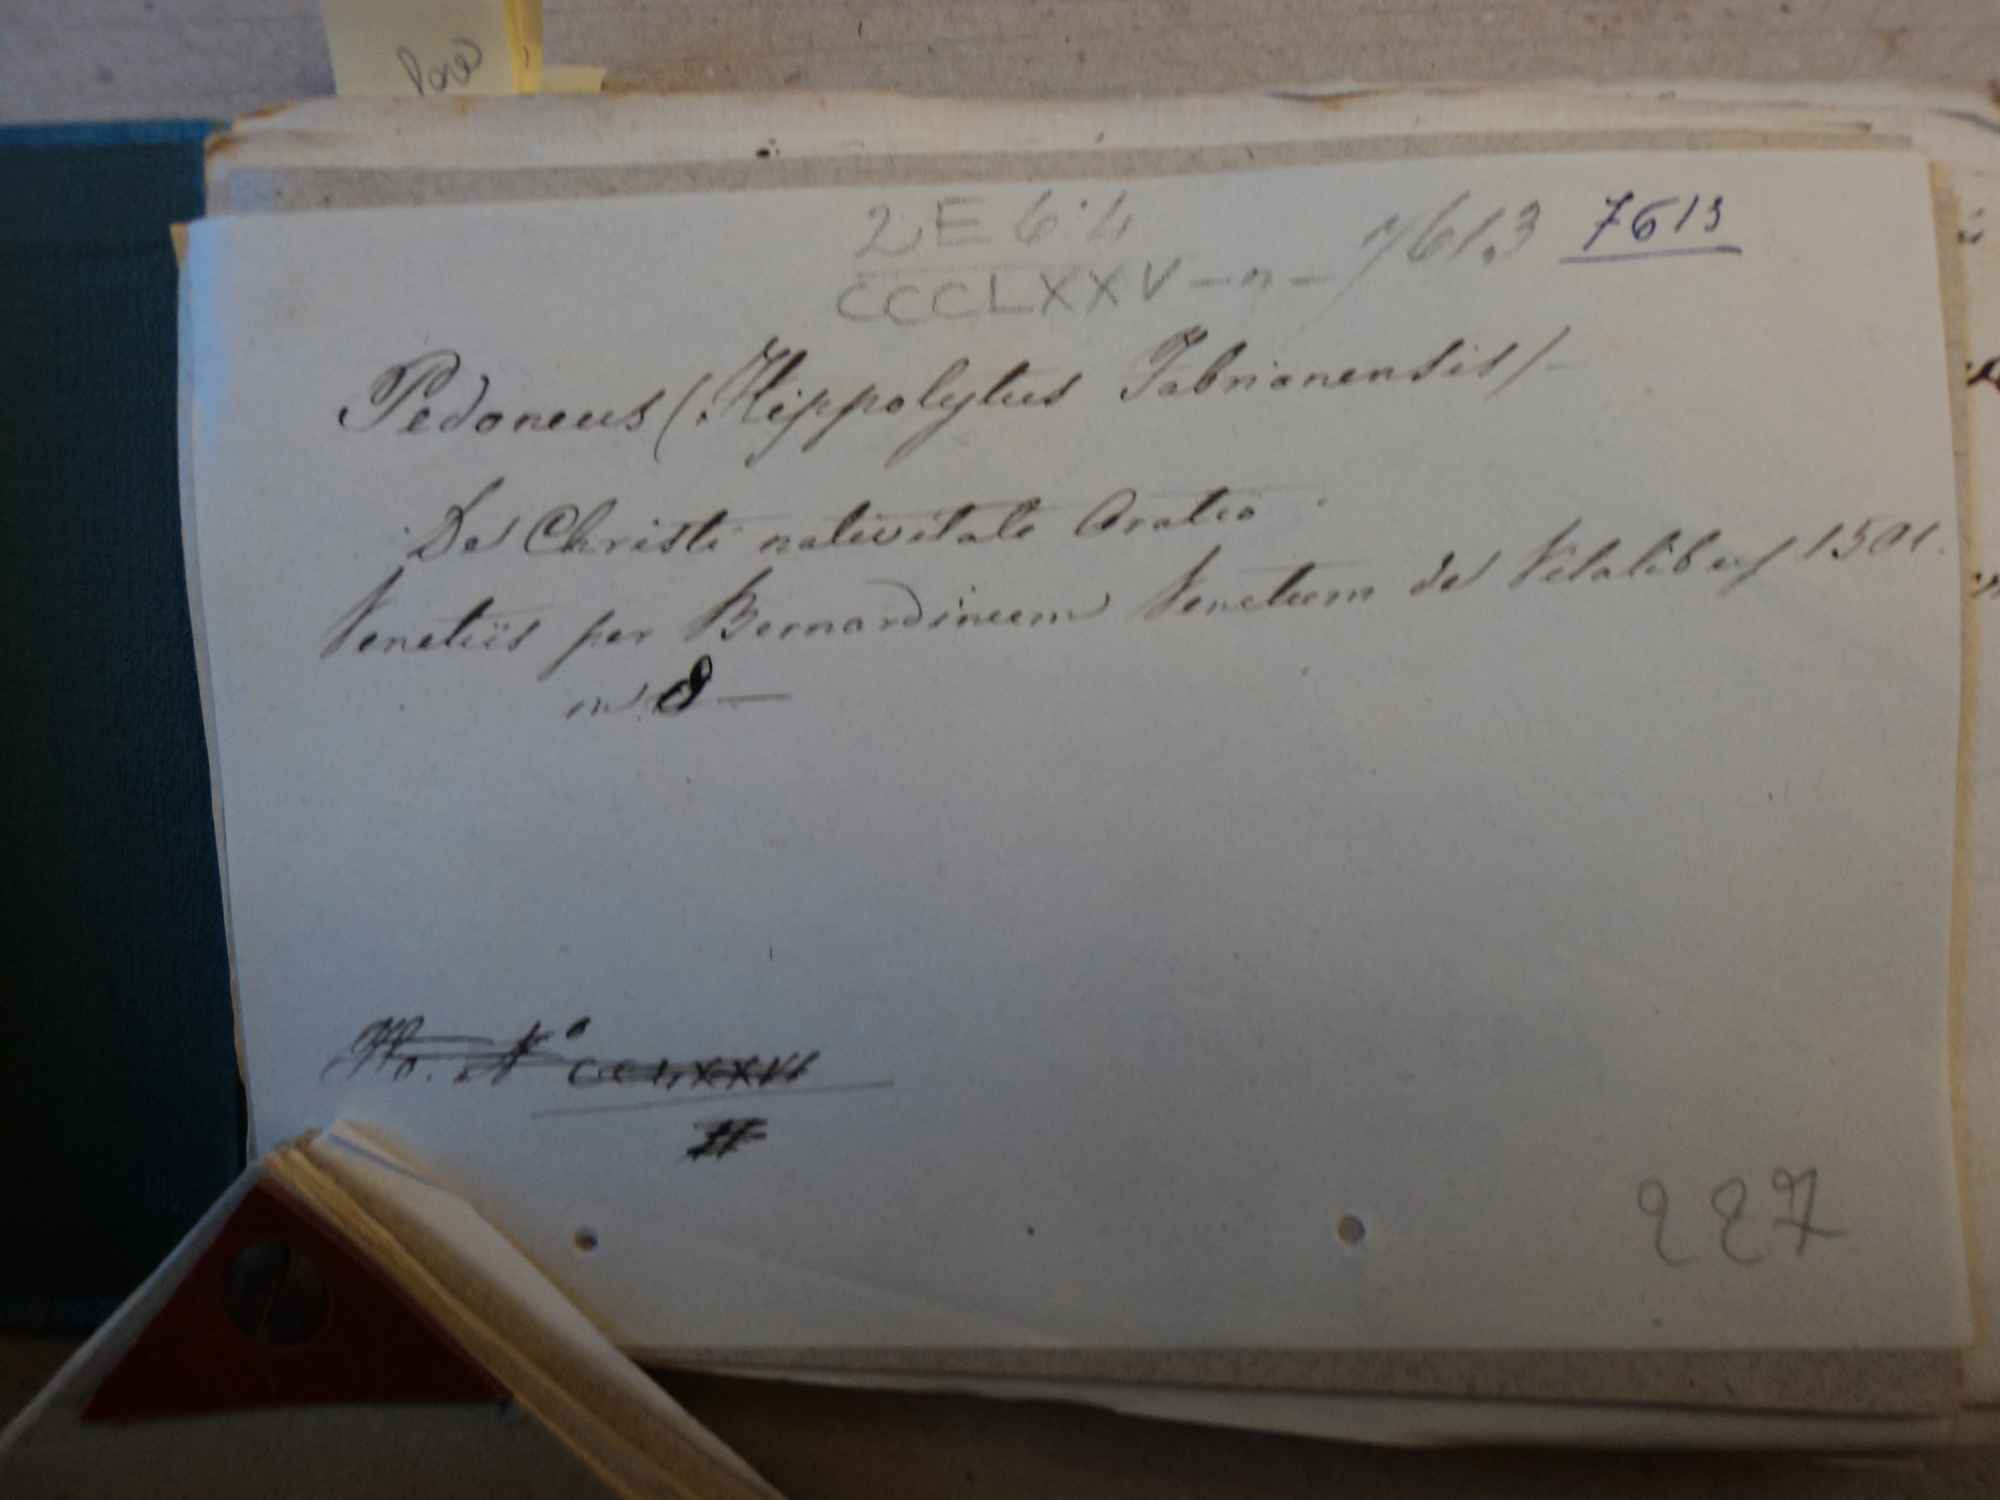 2 E 6·4
CCCLXXV — n — 7613 7613
Pedoneus (Hippolytus Fabrianensis) —
De Christi nativitate Oratio
Venetiis per Bernardineum Venetum de Vitalibus 1501.
in 8 —
No. N° CCLXXVI
227